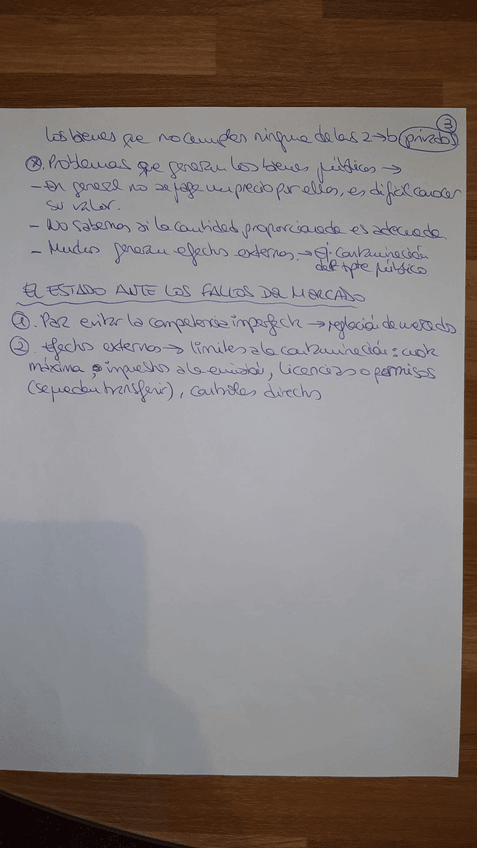 3
los bienes que no cumplen ninguna de las 2 → b. privados
* Problemas que generan los bienes públicos →
- En general no se paga un precio por ellos, es difícil conocer
su valor.
- No sabemos si la cantidad proporcionada es adecuada.
- Muchos generan efectos externos. → Ej. contaminación
del tpte público
EL ESTADO ANTE LOS FALLOS DEL MERCADO
1. Para evitar la competencia imperfecta → regulación de mercados
2. Efectos externos → límites a la contaminación: cuota
máxima, impuestos a la emisión, licencias o permisos
(se pueden transferir), controles directos